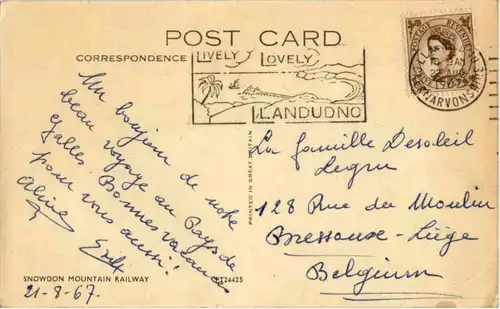 POST CARD
CORRESPONDENCE
LIVELY LOVELY
LLANDUDNO
POSTAGE REVENUE
Un bonjour de notre
beau voyage au Pays de
Galles. Bonnes vacances
pour vous aussi!
Aline
PRINTED IN GREAT BRITAIN
La famille Desoleil
128 Rue du Moulin
Bressoux-Liège
Belgium
SNOWDON MOUNTAIN RAILWAY
21-8-67.